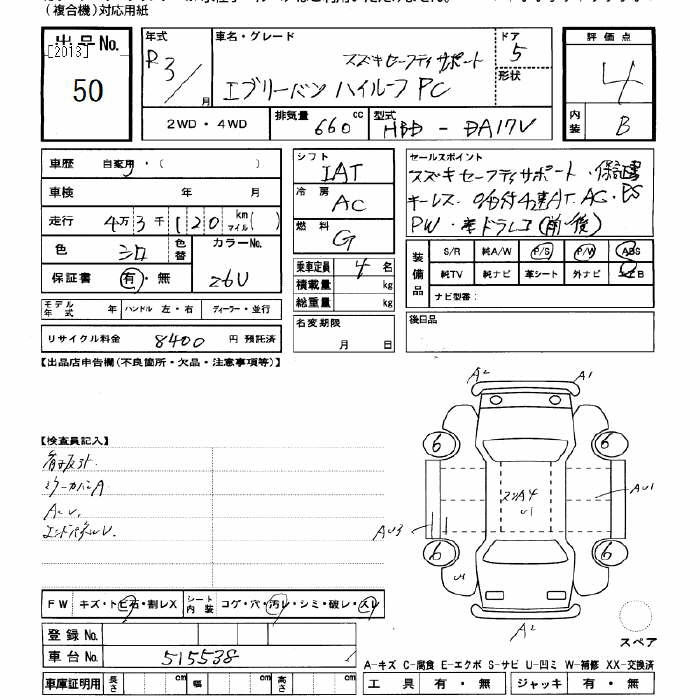 (複合機)対応用紙
出品No.
[2013]
50
年式
R3/
月
車名・グレード
スズキセーフティサポート
エブリーバン ハイルーフ PC
ドア
5
形状
評価点
4
内装
B
2WD・4WD
排気量
660
cc
型式
HBD - DA17V
車歴
自家用・( )
車検
年 月
走行
4万3千120
km
マイル( )
色
シロ
色替
カラーNo.
Z6U
保証書
有・無
モデル年式
年
ハンドル 左・右
ディーラー・並行
リサイクル料金
8400
円 預託済
シフト
IAT
冷房
AC
燃料
G
乗車定員
4
名
積載量
kg
総重量
kg
名変期限
月 日
セールスポイント
スズキセーフティサポート・保証書
PW・ドラレコ(前後)
装備品
S/R
純A/W
P/S
P/W
ABS
純TV
純ナビ
革シート
外ナビ
ナビ型番:
後日品
【出品店申告欄(不良箇所・欠品・注意事項等)】
【検査員記入】
ミラーカバーA
AU.
エンドパネルU.
A2
A1
6
6
6
6
AU1
AU3
U1
U1
A2
スペア
FW
キズ・トビ石・割レX
シート内装
コゲ・穴・汚レ・シミ・破レ・スレ
登録No.
車台No.
515538
車庫証明用
長さ
cm
幅
cm
高さ
cm
A-キズ C-腐食 E-エクボ S-サビ U-凹ミ W-補修 XX-交換済
工具
有・無
ジャッキ
有・無